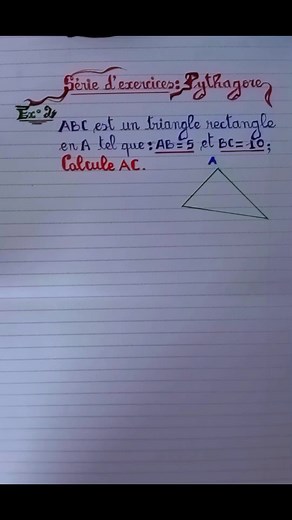 Série d'exercices: Pythagore
Ex° 2
ABC est un triangle rectangle
en A tel que: AB=5 et BC=10;
Calcule AC.
A